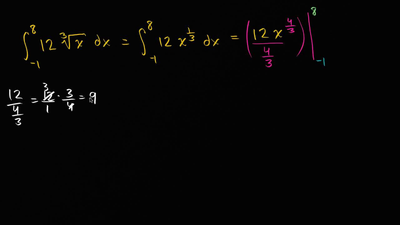 ∫₋₁⁸ 12 ∛x dx = ∫₋₁⁸ 12 x^(1/3) dx = (12 x^(4/3) / (4/3)) |₋₁⁸
12 / (4/3) = 12/1 · 3/4 = 9